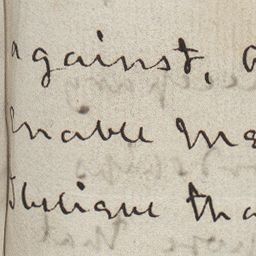 against, a
enable me
oblique tha